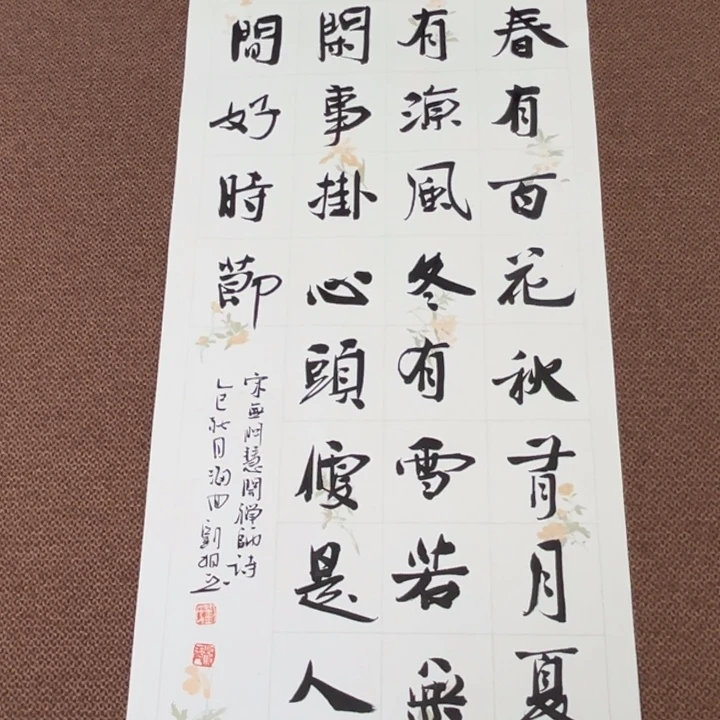 春有百花秋有月夏
有涼風冬有雪若無
閑事掛心頭便是人
間好時節
宋無門慧開禪師詩
乙巳秋月泗四劉